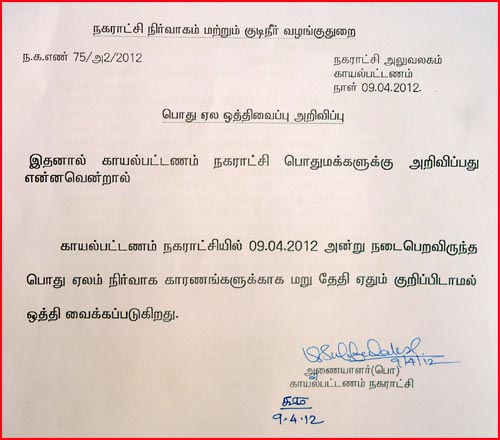 நகராட்சி நிர்வாகம் மற்றும் குடிநீர் வழங்குதுறை
ந.க.எண் 75/அ2/2012
நகராட்சி அலுவலகம்
காயல்பட்டணம்
நாள் 09.04.2012.
பொது ஏல ஒத்திவைப்பு அறிவிப்பு
இதனால் காயல்பட்டணம் நகராட்சி பொதுமக்களுக்கு அறிவிப்பது
என்னவென்றால்
காயல்பட்டணம் நகராட்சியில் 09.04.2012 அன்று நடைபெறவிருந்த
பொது ஏலம் நிர்வாக காரணங்களுக்காக மறு தேதி ஏதும் குறிப்பிடாமல்
ஒத்தி வைக்கப்படுகிறது.
9/4/12
ஆணையாளர்(பொ)
காயல்பட்டணம் நகராட்சி
9.4.12